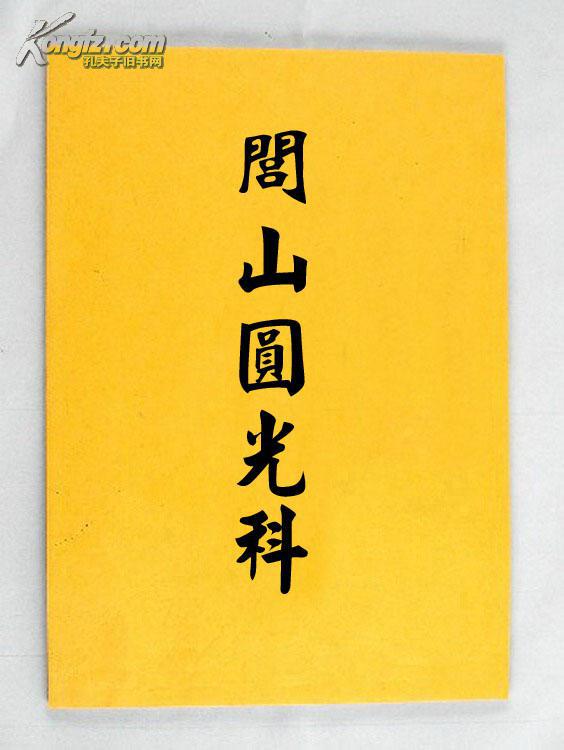 Kongfz.com
孔夫子旧书网
閭山圓光科